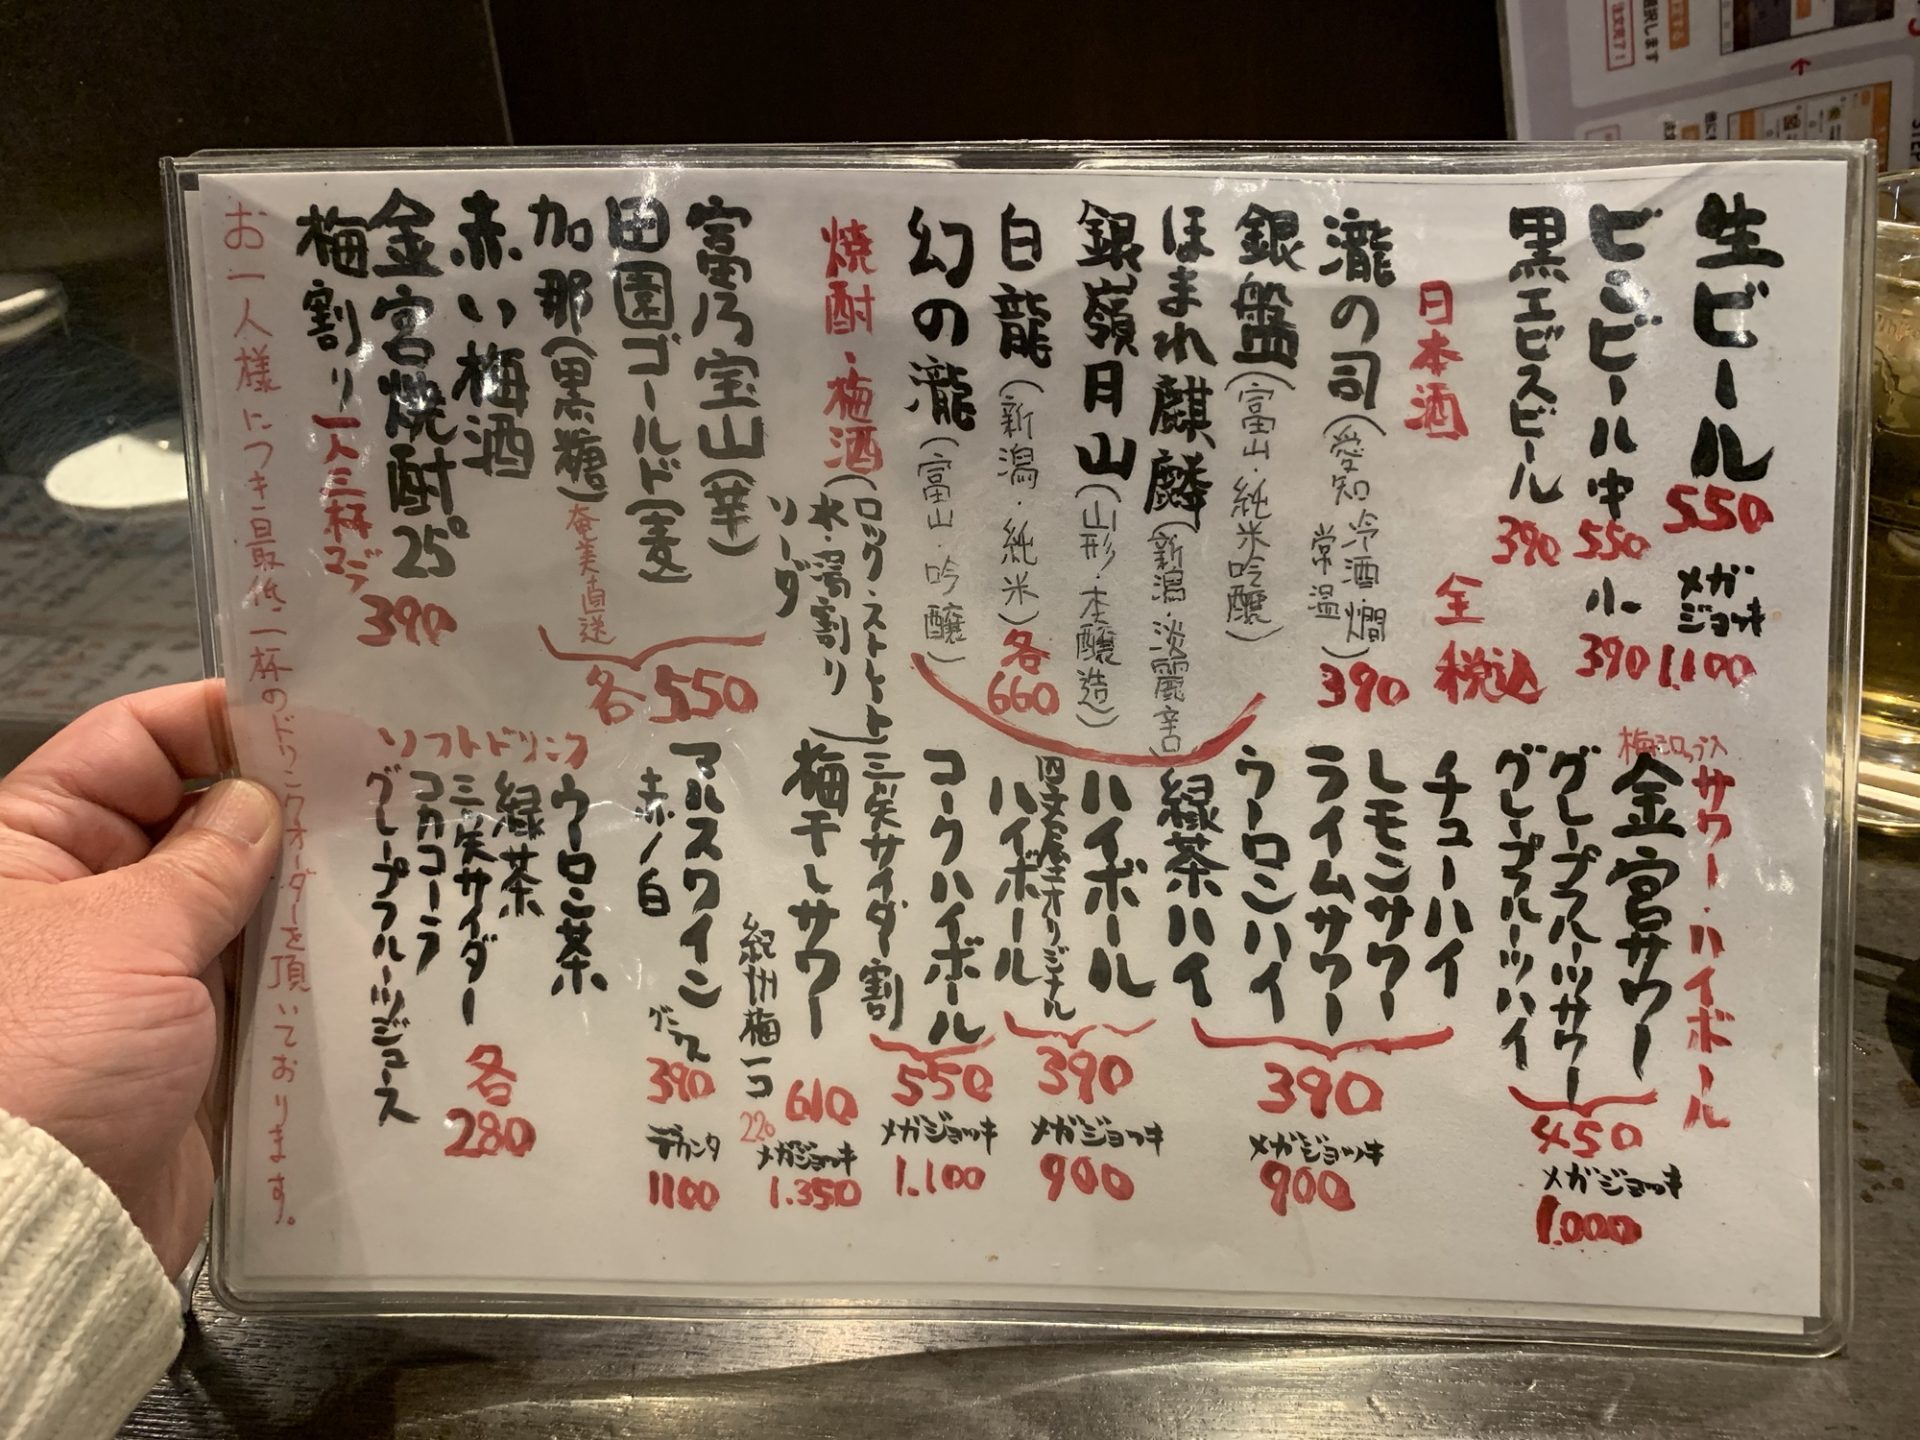 生ビール 550 メガジョッキ 1.100
ビンビール中 550 小 390
黒エビスビール 390
日本酒 全税込
瀧の司(愛知 冷酒・燗 常温) 390
銀盤(富山・純米吟醸)
ほまれ麒麟(新潟・淡麗辛口)
銀嶺月山(山形・本醸造)
白龍(新潟・純米)各660
幻の瀧(富山・吟醸)
焼酎・梅酒(ロック・ストレート
水・湯割り
ソーダ)
富乃宝山(芋)
田園ゴールド(麦)
加那(黒糖)奄美直送
各550
赤い梅酒
金宮焼酎25° 390
梅割り 一人三杯マデ
お一人様につき最低一杯のドリンクオーダーを頂いております。
サワー・ハイボール
梅シロップ入
金宮サワー
グレープフルーツサワー
グレープフルーツハイ
450
メガジョッキ
1.000
チューハイ
レモンサワー
ライムサワー
ウーロンハイ
緑茶ハイ
390
メガジョッキ
900
ハイボール
四文屋オリジナル
ハイボール
390
メガジョッキ
900
コークハイボール
三ツ矢サイダー割
550
メガジョッキ
1.100
梅干しサワー 610
メガジョッキ
1.350
紀州梅一コ 220
マルスワイン グラス 390
赤/白
デカンタ
1100
ソフトドリンク
ウーロン茶
緑茶
三ツ矢サイダー
コカコーラ
グレープフルーツジュース
各280
選択します
注文完了!